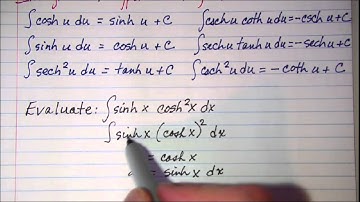 ∫cosh u du = sinh u + C ∫csch u coth u du = -csch u + C
∫sinh u du = cosh u + C ∫sech u tanh u du = -sech u + C
∫sech² u du = tanh u + C ∫csch² u du = -coth u + C
Evaluate: ∫sinh x cosh² x dx
∫sinh x (cosh x)² dx
= cosh x
= sinh x dx